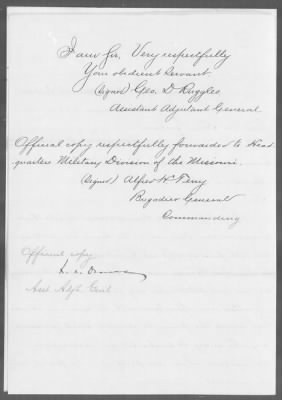 I am Sir, Very respectfully
Your obedient Servant
(signed) Geo. D. Ruggles
Assistant Adjutant General
Official copy respectfully forwarded to Head-
quarters Military Division of the Missouri.
(signed) Alfred H. Terry
Brigadier General
Commanding
Official copy
Asst Adjt Genl